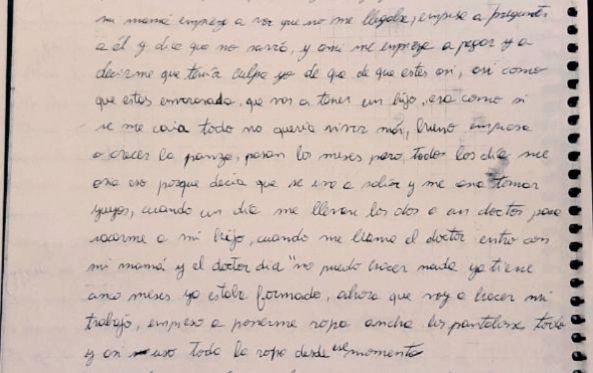 mi mamá empieza a ver que no me llegaba, empiesa a preguntar
a él y dice que no sabía, y así me empieza a pegar y a
decirme que tenía culpa yo de que de que estes asi, asi como
que estas embarasada, que vas a tener un hijo, era como si
se me caia todo no queria vivir más, bueno empiesa
a crecer la panza, pasan los meses pero todos los dia me
era eso porque decia que se iva a salir y me tomar
yuyos, cuando un dia me llevan los dos a un doctor para
sacarme a mi hijo, cuando me llama el doctor entro con
mi mamá y el doctor dia "no puedo hacer nada ya tiene
meses ya estaba formado, ahora que voy a hacer mi
trabajo, empieso a ponerme ropa ancha los pantalones todo
y asi uso toda la ropa desde ese momento